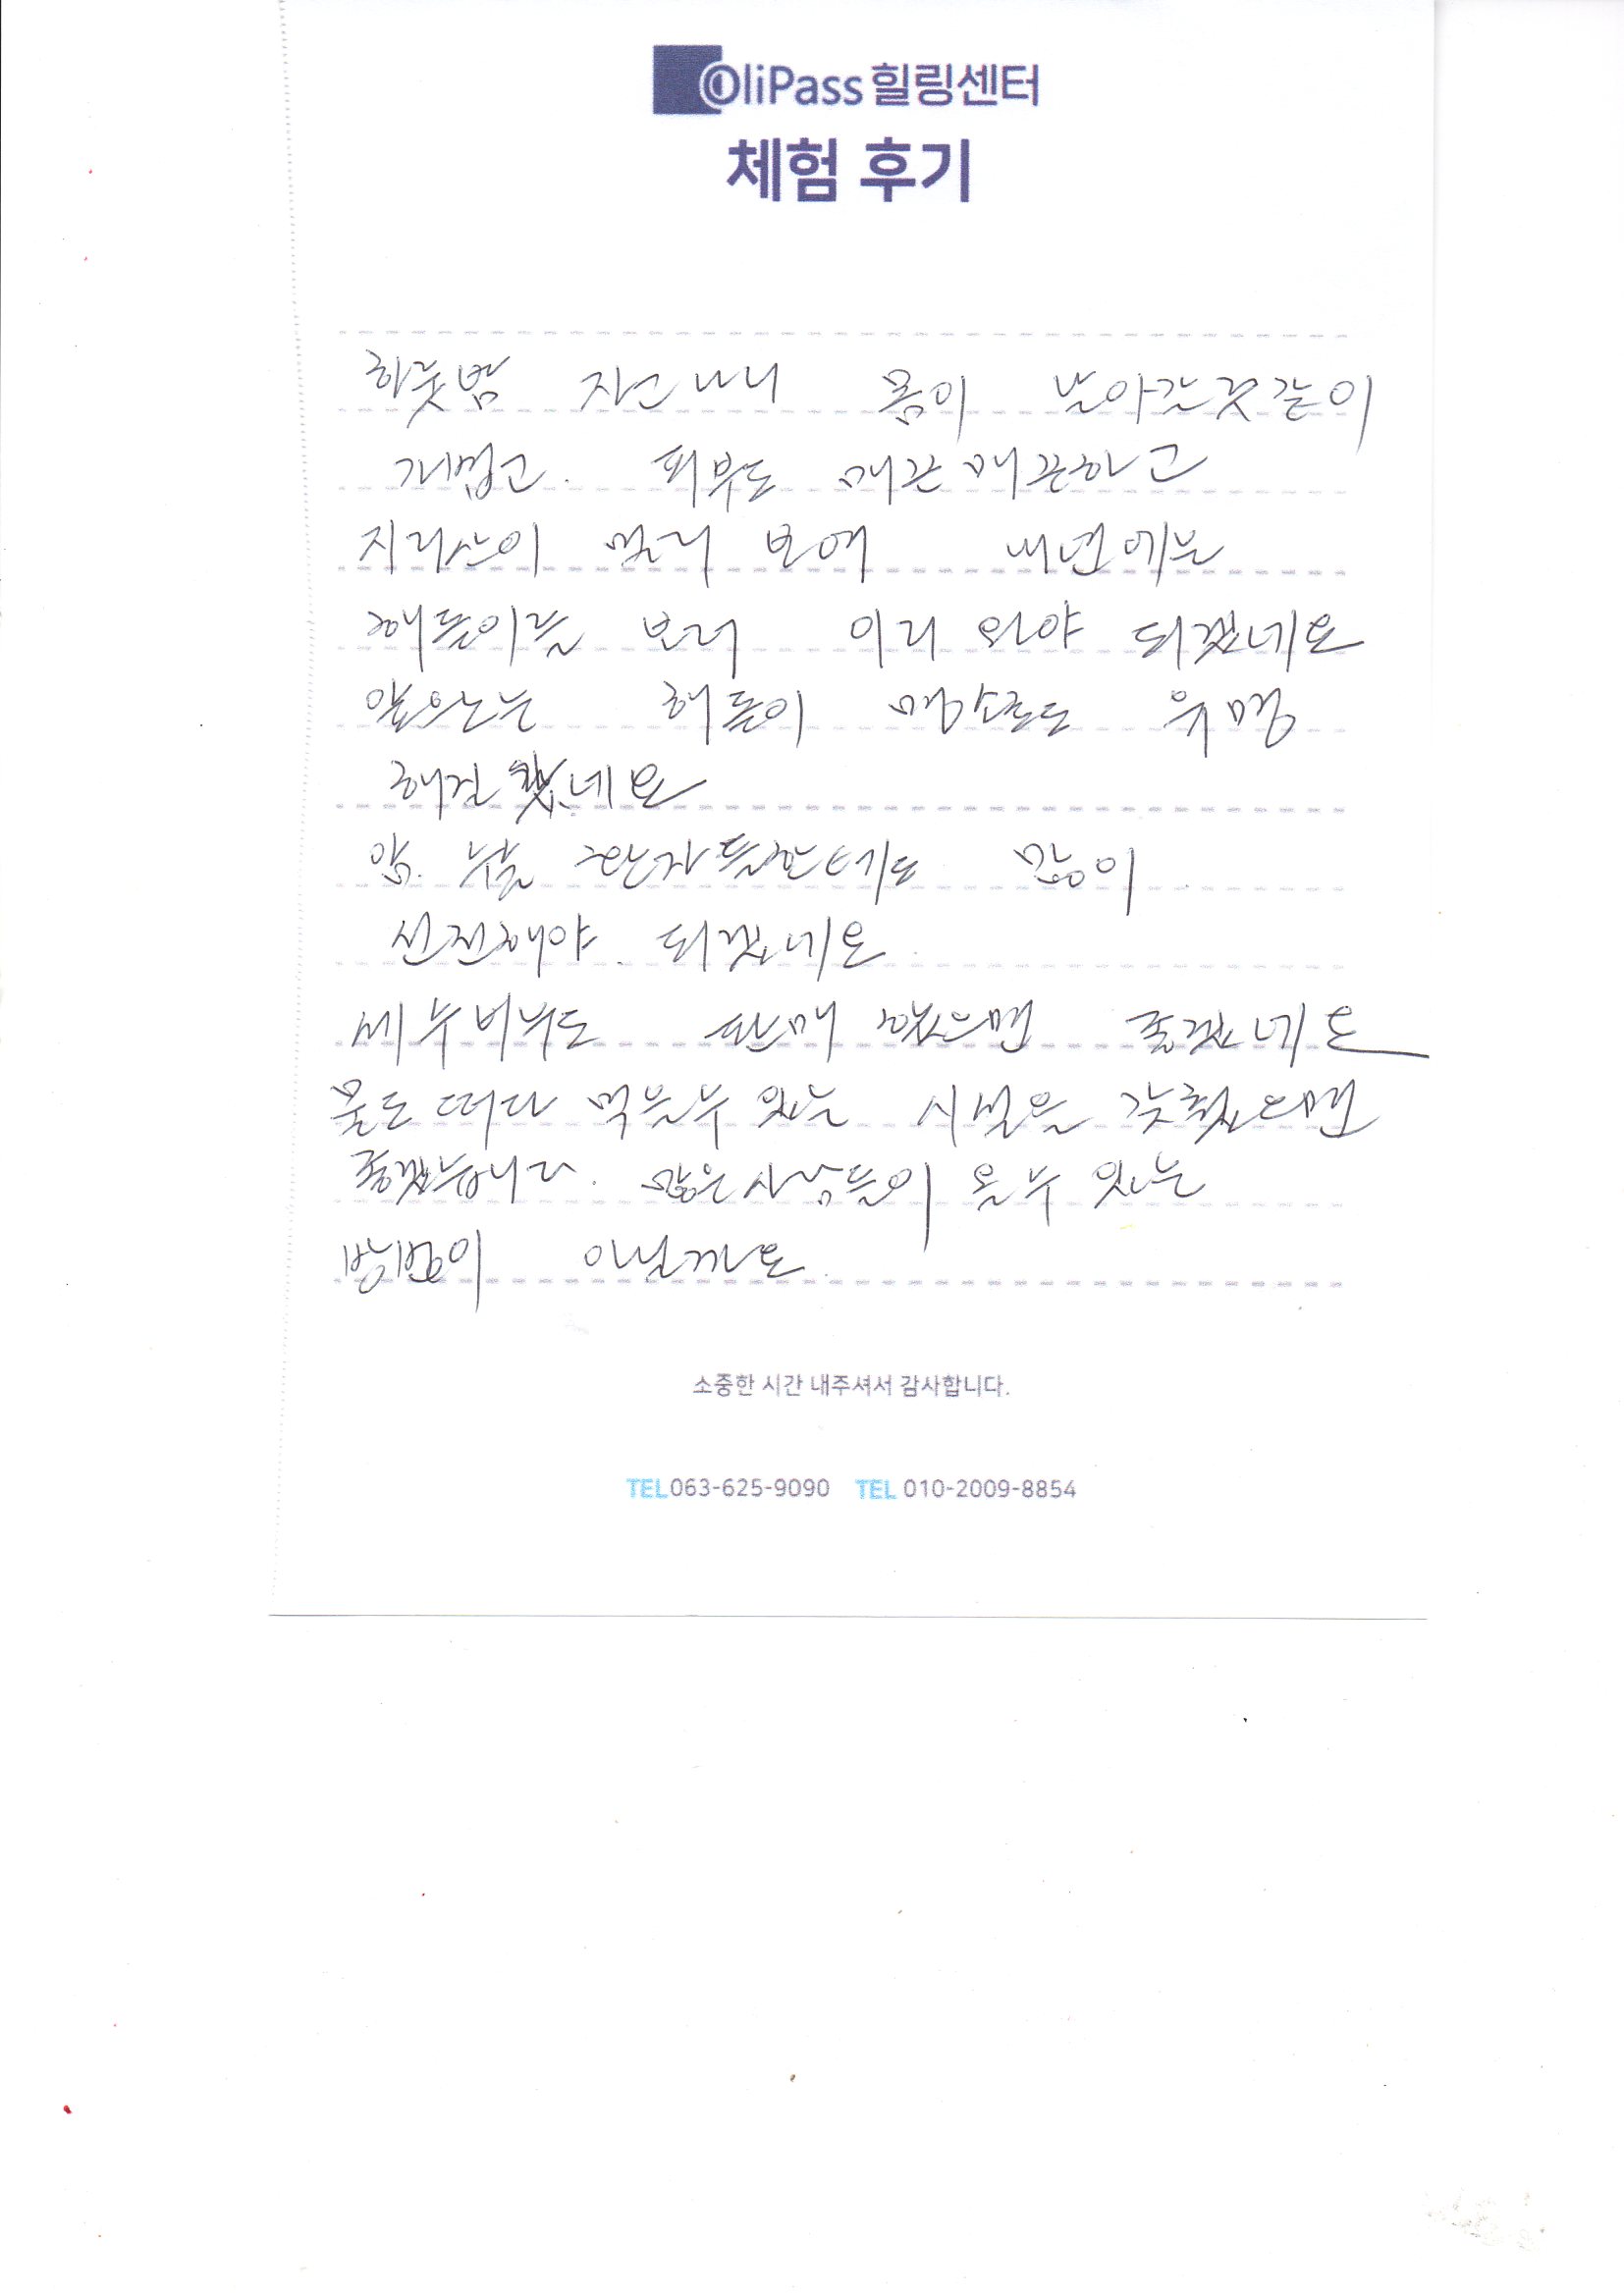 OliPass 힐링센터
체험 후기
하룻밤 자고나니 몸이 날아갈것같이
개볍고. 피부도 매끈매끈하고
지리산이 멀리 보여 내년에는
해돋이를 보러 이리 와야 되겠네요
앞으로는 해돋이 명소로도 유명
해질 네요
암. 수술 환자들한테도 많이
선전해야. 되겠네요.
세수비누도 판매 했으면 좋겠네요
물도 떠다 먹을수 있는 시설을 갖췄으면
좋겠습니다. 많은사람들이 올수 있는
방법이 아닐까요.
소중한 시간 내주셔서 감사합니다.
TEL 063-625-9090 TEL 010-2009-8854